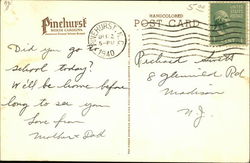 Pinehurst
NORTH CAROLINA
HANDCOLORED
POST CARD
PINEHURST, N.C.
5-PM
1940
Did you go to
school today?
Will be home before
long to see you
Love from
Mother & Dad
Richard Smith
8 Glenwild Rd
Madison
N.J.